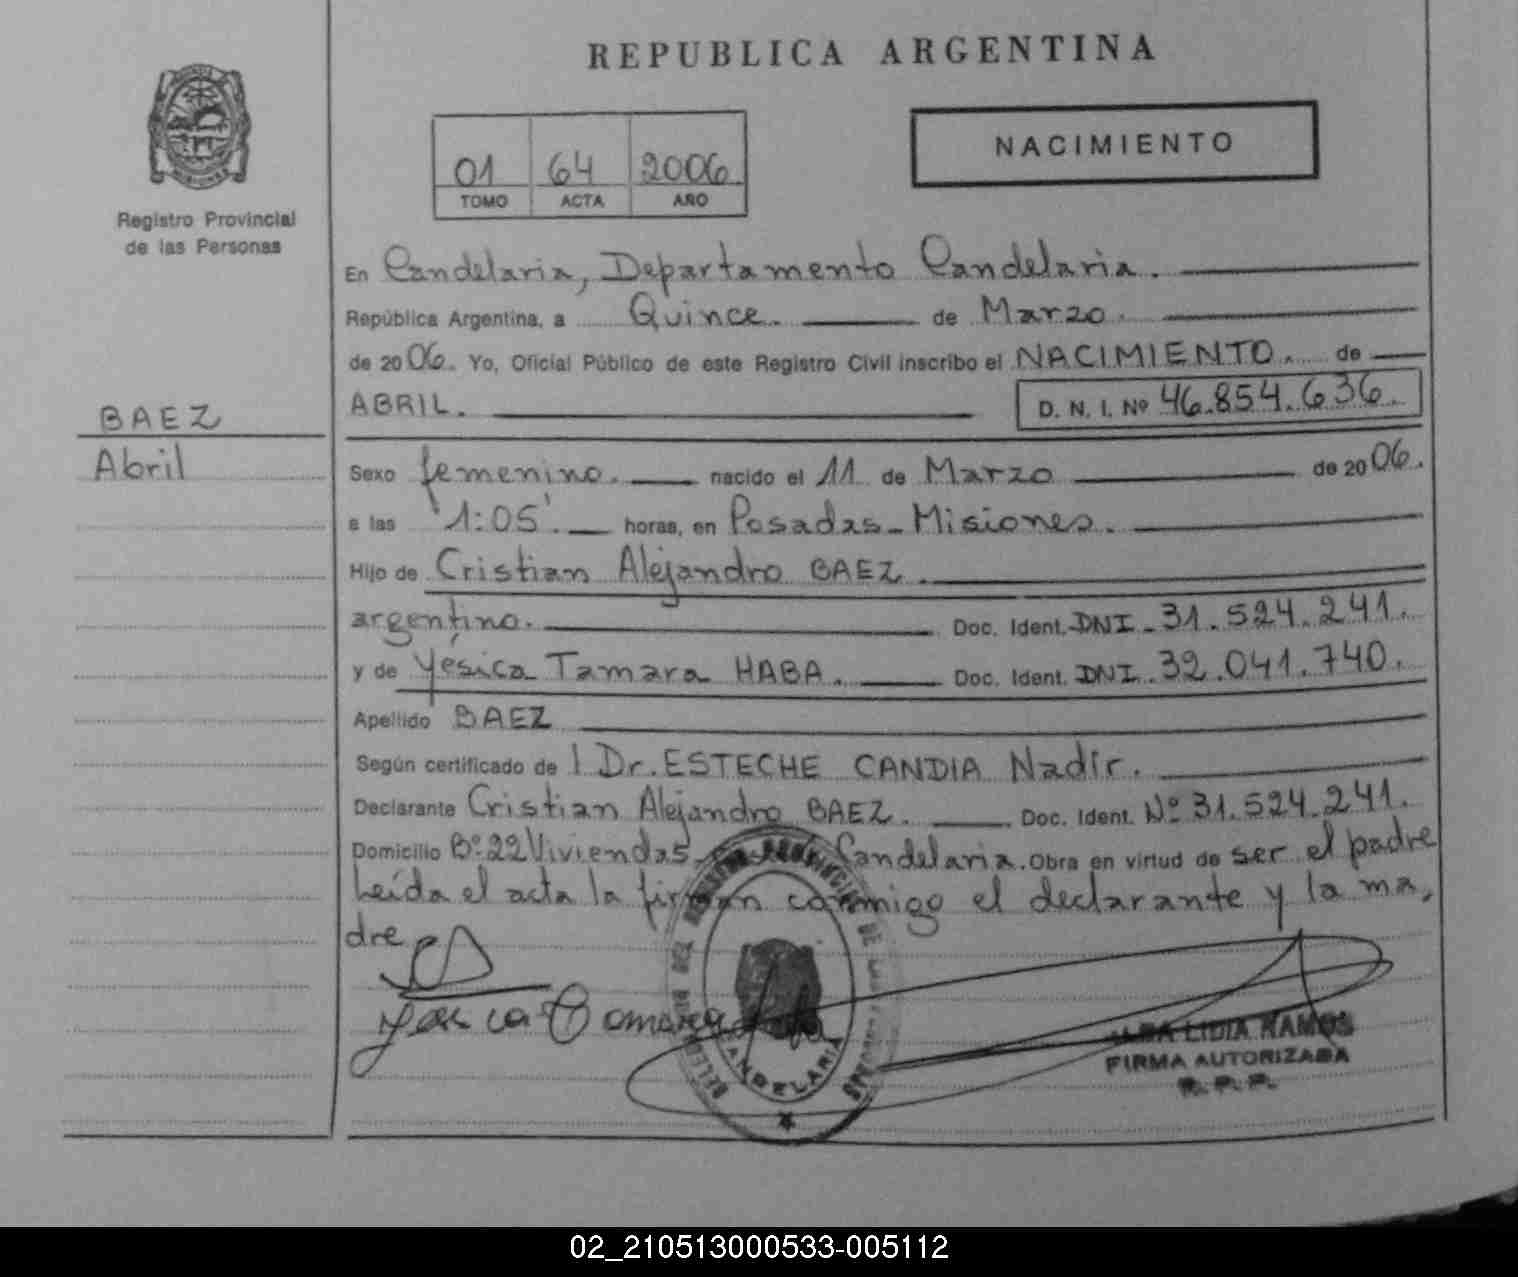 REPUBLICA ARGENTINA
01 64 2006
TOMO ACTA AÑO
NACIMIENTO
Registro Provincial
de las Personas
En Candelaria, Departamento Candelaria.
República Argentina, a Quince. de Marzo.
de 2006. Yo, Oficial Público de este Registro Civil inscribo el NACIMIENTO. de
ABRIL. D. N. I. Nº 46.854.636.
BAEZ
Abril
Sexo femenino. nacido el 11 de Marzo de 2006.
a las '1:05'. horas, en Posadas-Misiones.
Hijo de Cristian Alejandro BAEZ.
argentino. Doc. Ident. DNI. 31.524.241.
y de Yésica Tamara HABA. Doc. Ident. DNI. 32.041.740.
Apellido BAEZ
Según certificado de 1 Dr. ESTECHE CANDIA Nadir.
Declarante Cristian Alejandro BAEZ. Doc. Ident. Nº 31.524.241.
Domicilio Bº 22 Viviendas Candelaria. Obra en virtud de ser el padre
Leída el acta la firman conmigo el declarante y la ma,
dre
CANDELARIA
LIDIA RAMOS
FIRMA AUTORIZADA
R. P. P.
02_210513000533-005112